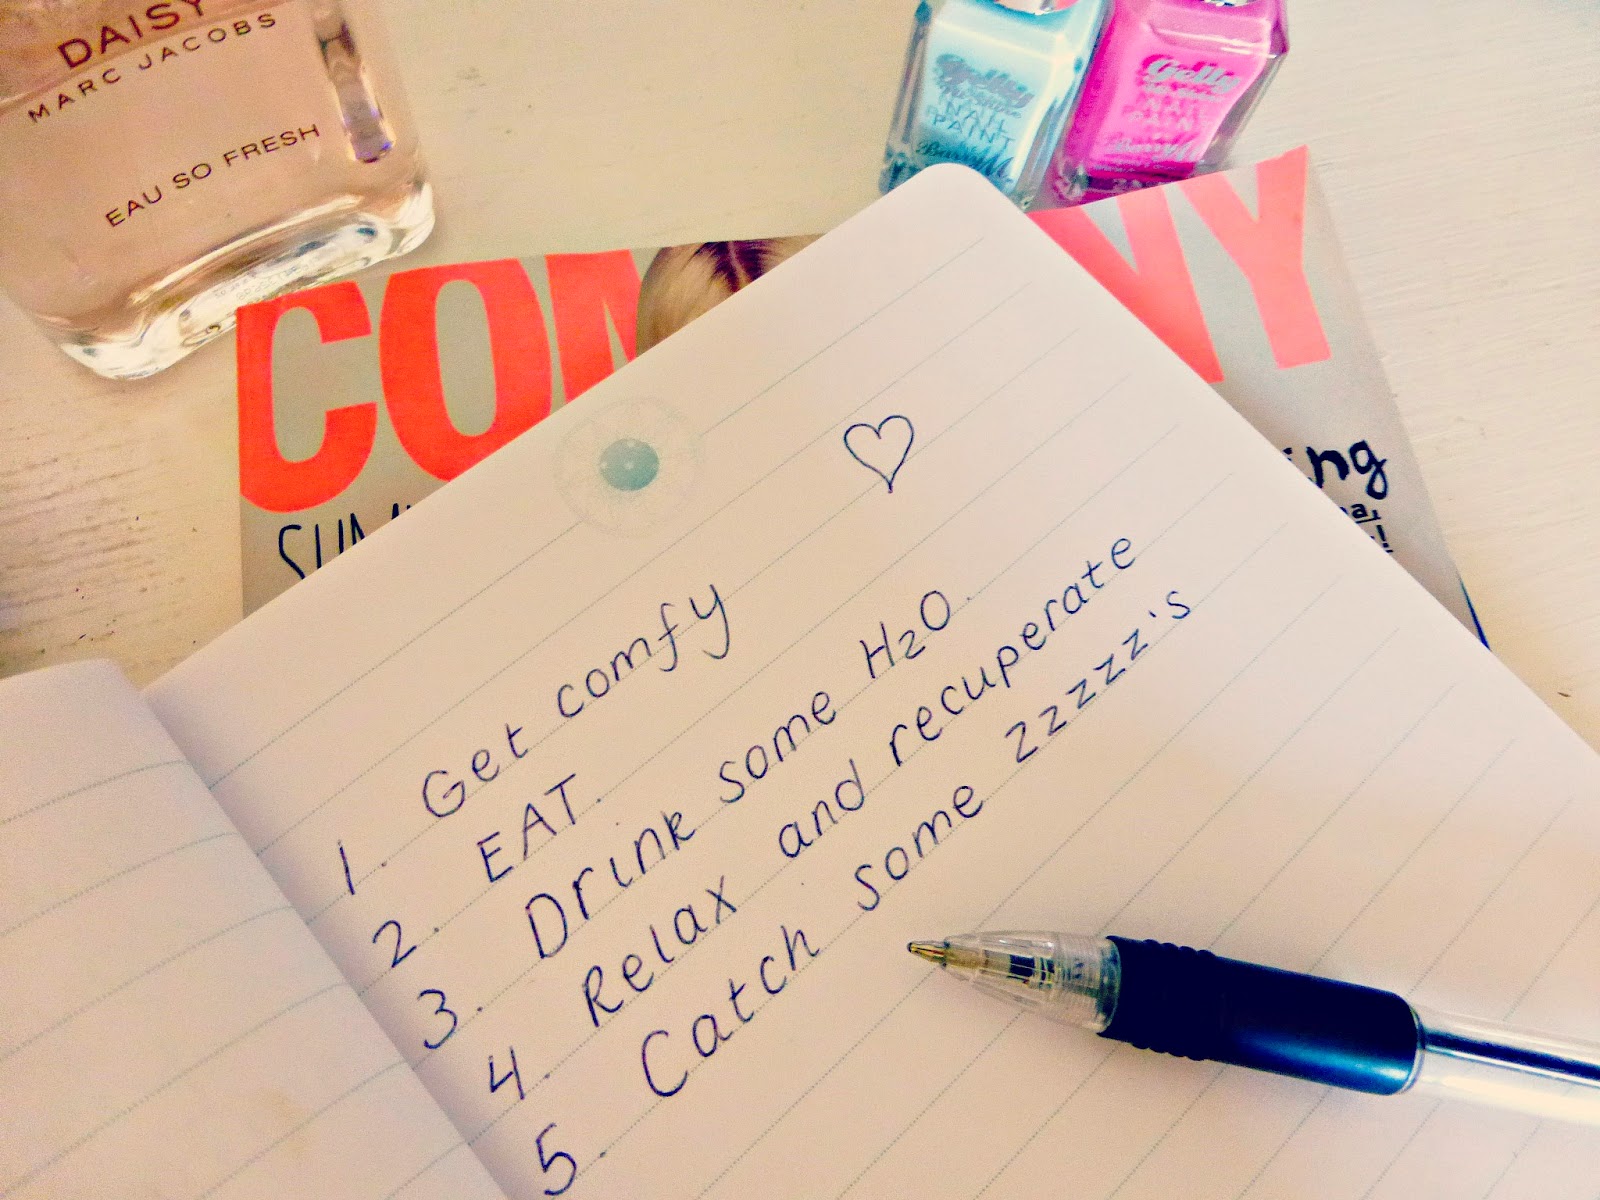 DAISY
MARC JACOBS
EAU SO FRESH
Gelly
NAIL
PAINT
Gelly
NAIL
PAINT
COM NY
SUM
ing
1. Get comfy
2. EAT.
3. Drink some H2O.
4. Relax and recuperate
5. Catch some Zzzzzz's